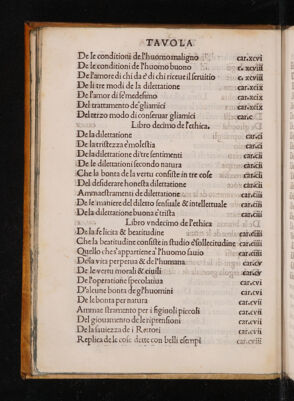 TAVOLA
De le conditioni de l'huomo maligno car.xcvi
De le conditioni de l'huomo buono c. xcviii
De l'amore di chi da & di chi riceue il seruitio c. xcviii
De li tre modi de la dilettatione car.xcix
De l'amor di se medesimo car.xcix
Del trattamento de gliamici car.xcix
Del terzo modo di conseruar gliamici car.c
Libro decimo de l'ethica.
De la dilettatione car.ci
De la tristezza & molestia car.ci
De la dilettatione di tre sentimenti car.cii
De le dilettationi secondo natura car.cii
Che la bonta de la vertu consiste in tre cose car.cii
Del desiderare honesta dilettatione car.cii
Ammaestramenti di dilettatione car.cii
De le maniere del diletto sensuale & intellettuale car.ciii
De la dilettatione buona & trista car.ciii
Libro vndecimo de l'ethica
De la felicita & beatitudine car.ciii
Che la beatitudine consiste in studio & sollecitudine car.ciiii
Quello che s'appartiene a l'huomo sauio car.ciiii
De la vita perpetua & de l'humana car.cv
De le vertu morali & ciuili car.cv
De l'operatione specolatiua car.cvi
D'alcune bonta de gl'huomini car.cvi
De le bonta per natura car.cvi
Ammaestramento per i figiuoli piccoli car.cvii
Del giouamento de le riprensioni car.cvii
De la sauiezza de i Rettori car.cvii
Replica de le cose dette con belli esempi car.cviii